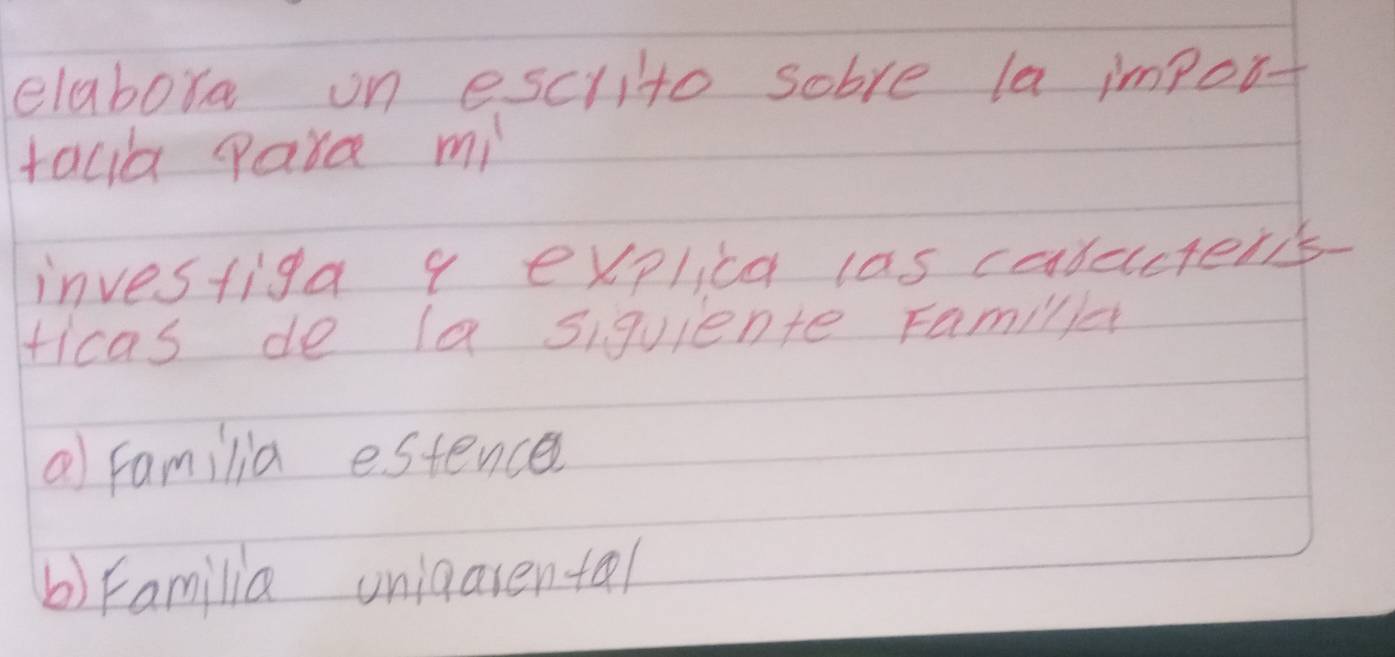 elabora un escrito sobre la impor-
tacia para mi
investiga y explica las caracterís-
ticas de la siguiente Familia
a) Familia estence
b) Familia uniparental